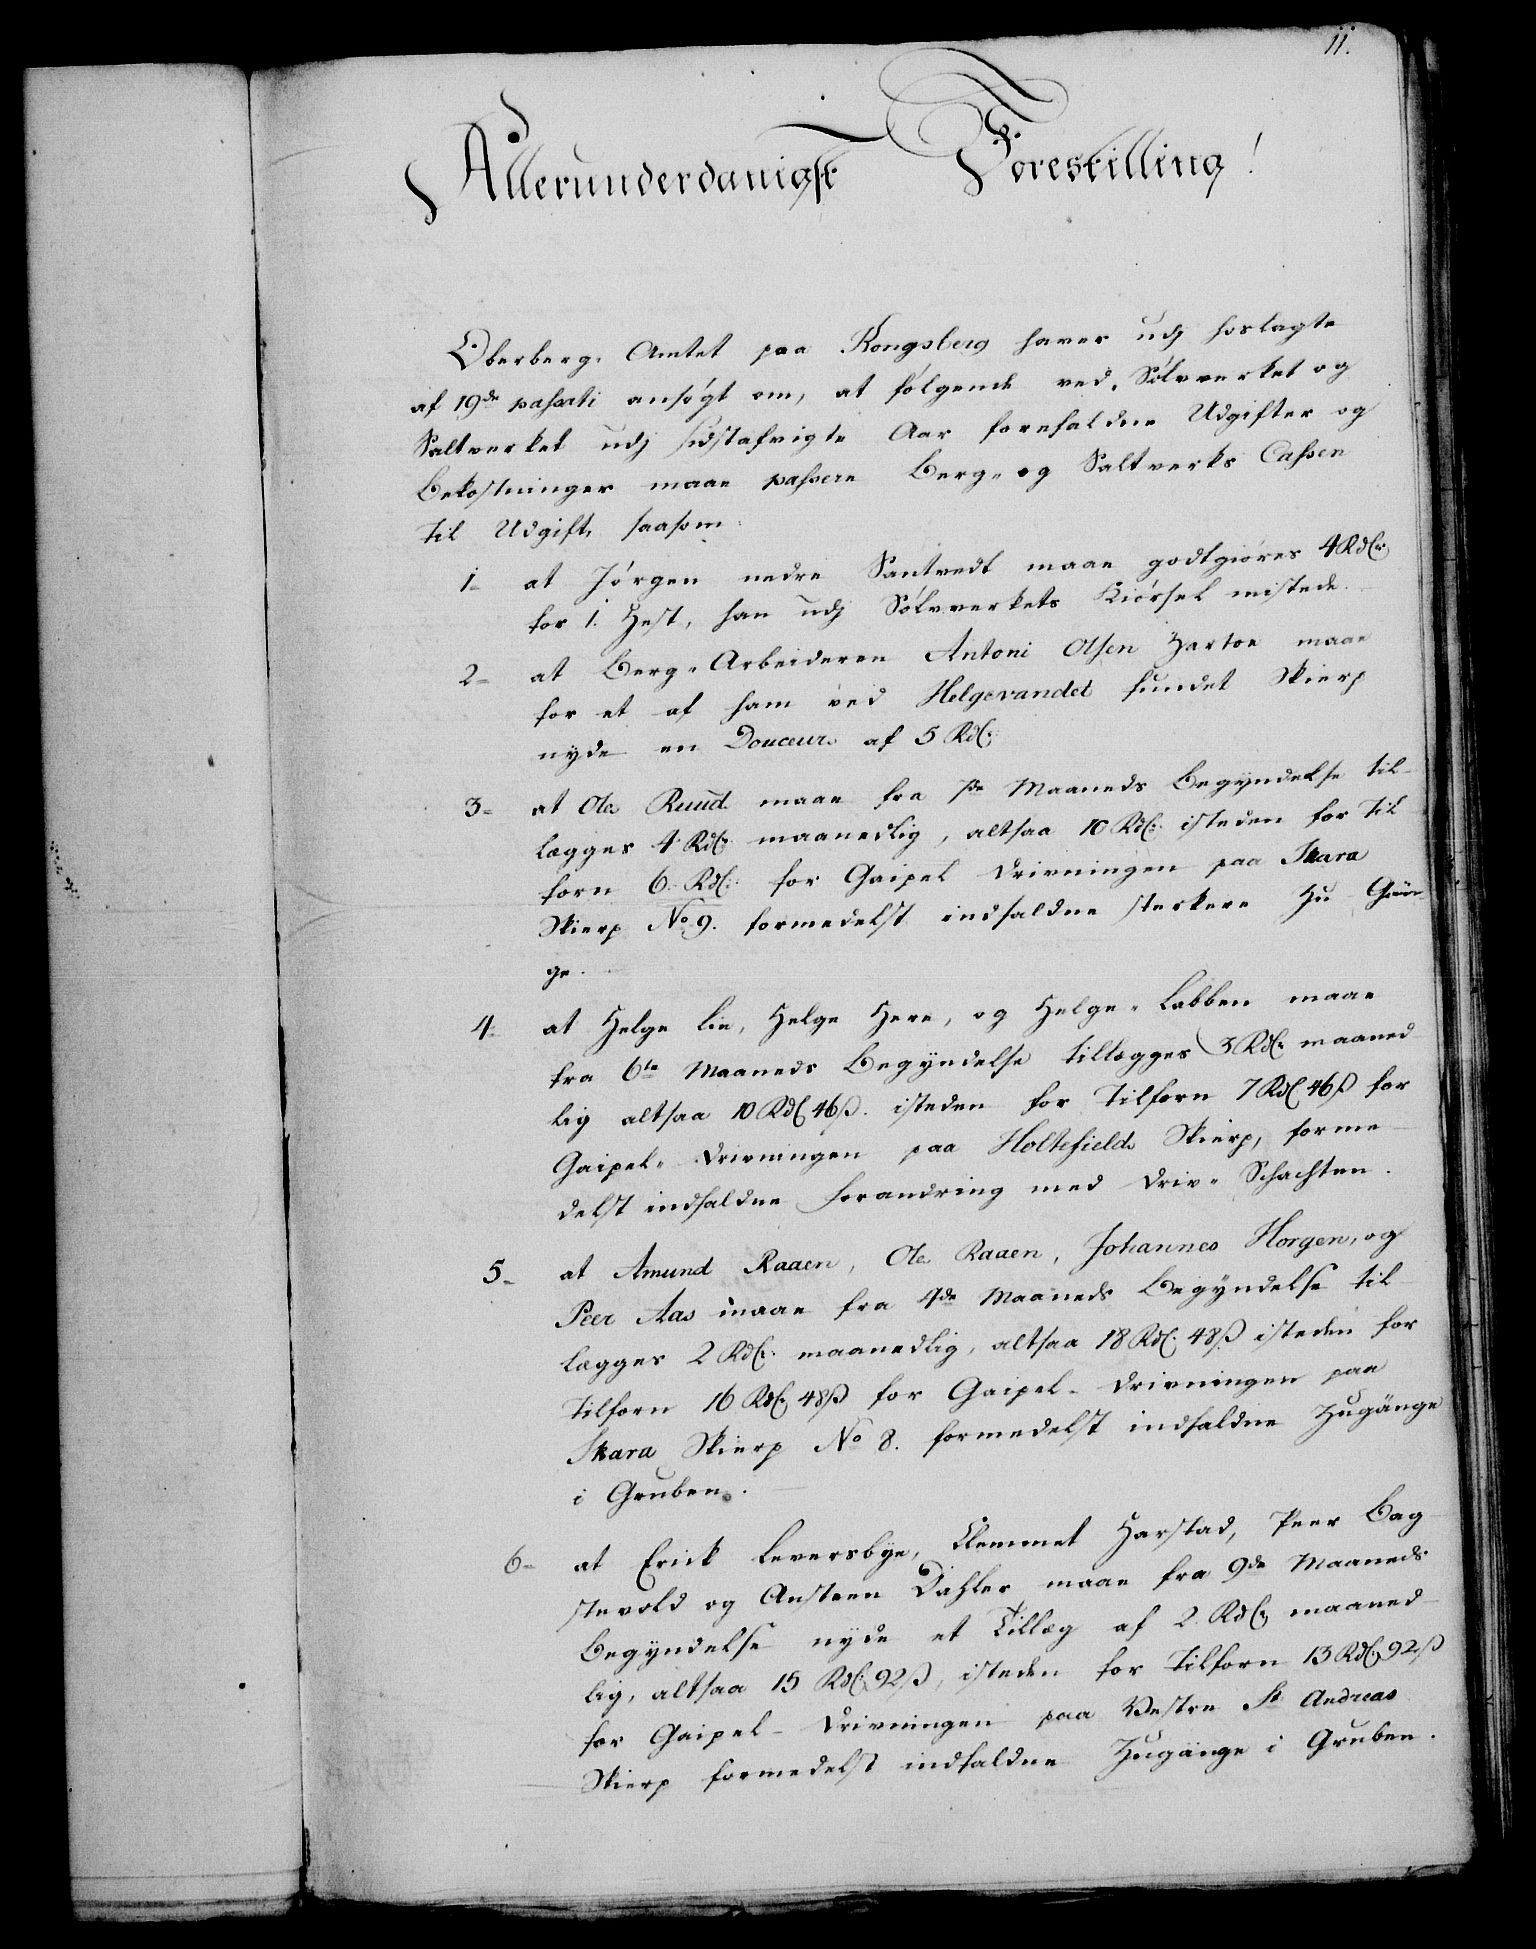 11.
Allerunderdanigst Forestilling!
Oberberg-Amtet paa Kongsberg haver udj hoslagte
af 19de passati ansøgt om, at følgende ved Sølvverket og
Saltverket udj sidstafvigte Aar forefaldne Udgifter og
Bekostninger maae passere Berg- og Saltverks Cassen
til Udgift, saasom:
1- at Jørgen nedre Santvedt maae godtgiøres 4 Rdlr.
for 1. Hest, han udj Sølvverkets Kiørsel mistede.
2- at Berg-Arbeideren Antoni Olsen Hartoe maae
for et af ham ved Helgevandet fundet Skierp
nyde en Douceur af 5 Rdl.
3- at Ole Ruud maae fra Maaneds Begyndelse til-
lægges 4 Rdl. maanedlig, altsaa 10 Rdl. isteden for til
forn 6. Rdl. for Gaipel Drivningen paa Skara
Skierp No. 9. formedelst indfaldne sterkere Zu Gän-
ge.
4- at Helge Lie, Helge Here, og Helge-Labben maae
fra 6te Maaneds Begyndelse tillægges 3 Rdl. maaned
lig altsaa 10 Rdl 46 ß. isteden for Tilforn 7 Rdl 46 ß for
Gaipel-Drivningen paa Holtefields Skierp, forme
delst indfaldne Forandring med Driv-Schachten.
5- at Amund Raaen, Ole Raaen, Johannes Horgen, og
Peer Aas maae fra 4de Maaneds Begyndelse til
lægges 2 Rdl. maanedlig, altsaa 18 Rdl. 48 ß isteden for
Tilforn 16 Rdl. 48 ß for Gaipel-Drivningen paa
Skara Skierp No 8. formedelst indfaldne Zugänge
i Gruben.
6- at Erick Leversbye, Clemmet Harstad, Peer Bag
stevold og Ansteen Dahler maae fra 9de Maaneds
Begyndelse nyde et Tillæg af 2. Rdl. maaned
lig, altsaa 15 Rdl. 92 ß, isteden for Tilforn 13 Rdl. 92 ß
for Gaipel-Drivningen paa Vestre St. Andreas
Skierp formedelst indfaldne Zugänge i Gruben.